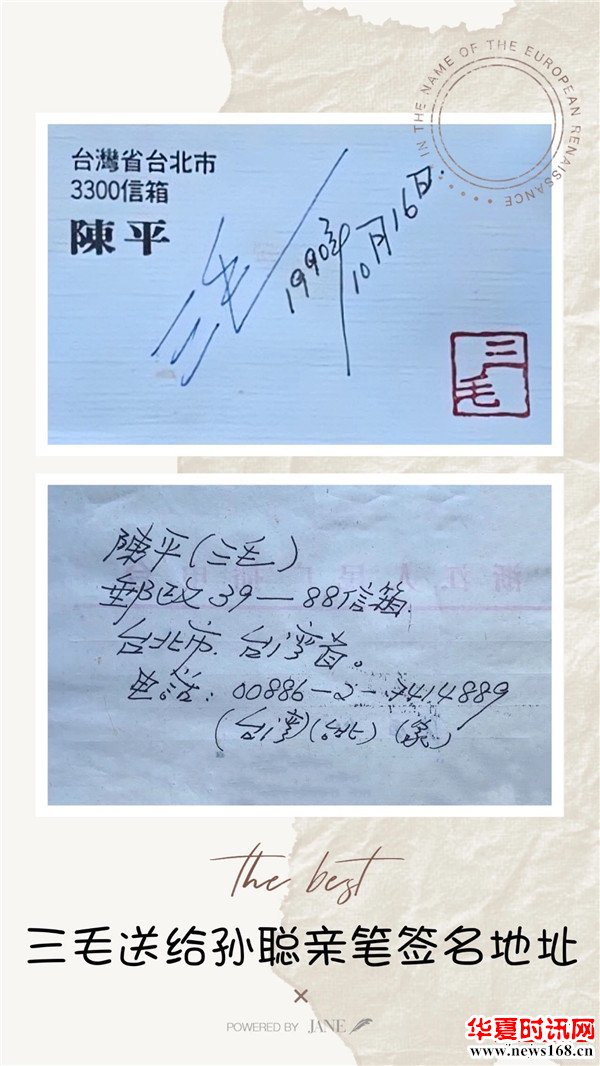 IN THE NAME OF THE EUROPEAN RENAISSANCE
台灣省台北市
3300信箱
陳平
三毛
1990年
10月16日.
三毛
陳平(三毛)
郵政39—88信箱
台北市.台灣省。
电话:00886-2-7414889
(台灣)(台北)(家)
the best
三毛送给孙聪亲笔签名地址
×
POWERED BY JANE
华夏时讯网
www.news168.cn